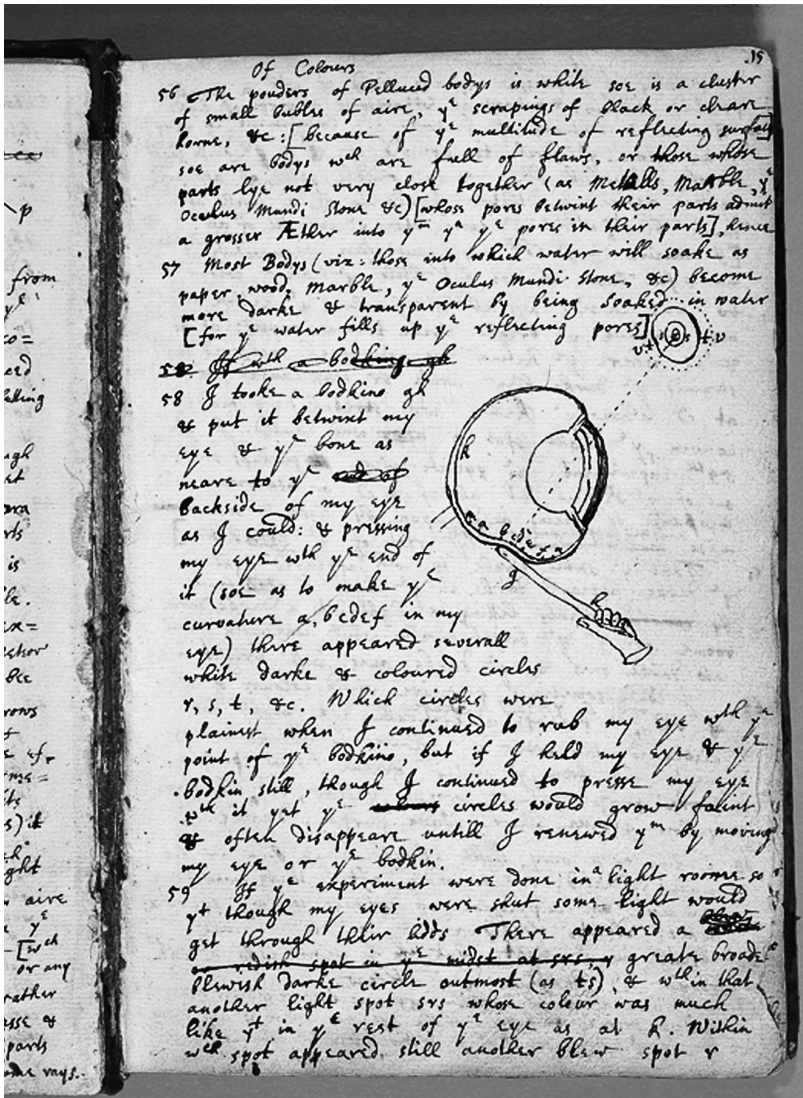 15
Of Colours
56 The pouders of Pellucid bodys is white soe is a cluster
of small bubles of aire, yᵉ scrapings of black or cleare
horne, &c: [because of yᵉ multitude of reflecting surfac
soe are bodys wᶜʰ are full of flaws, or those whose
parts lye not very close together (as Metalls, Marble, yᵉ
Oculus Mundi Stone &c) [whose pores betwixt their parts admit
a grosser Æther into yᵐ yⁿ yᵉ pores in their parts], hence
57 Most Bodys (viz: those into which water will soake as
paper, wood, marble, yᵉ Oculus Mundi Stone, &c) become
more darke & transparent by being soaked in water
[for yᵉ water fills up yᵉ reflecting pores]
58 If wᵗʰ a bodking gh
58 I tooke a bodkine gh
& put it betwixt my
eye & yᵉ bone as
neare to yᵉ
backside of my eye
as I could: & pressing
my eye wᵗʰ yᵉ end of
it (soe as to make yᵉ
curvature a, bcdef in my
eye) there appeared severall
white darke & coloured circles
r, s, t, &c. Which circles were
plainest when I continued to rub my eye wᵗʰ yᵉ
point of yᵉ bodkine, but if I held my eye & yᵉ
bodkin still, though I continued to presse my eye
wᵗʰ it yet yᵉ circles would grow faint
& often disappeare untill I renewed yᵐ by moving
my eye or yᵉ bodkin.
59 If yᵉ experiment were done in a light roome so
yᵗ though my eyes were shut some light would
get through their lidds There appeared a
redish spot in yᵉ midst at srs, greate broade
blewish darke circle outmost (as ts), & wᵗʰin that
another light spot srs whose colour was much
like yᵗ in yᵉ rest of yᵉ eye as at k. Within
wᶜʰ spot appeared still another blew spot r
k
g
h
p
from
yᵉ
co=
ced
is
le.
ex=
rows
ef=
me=
s) it
ght
aire
yᵉ
[wᶜʰ
or any
rather
sse &
parts
rays.